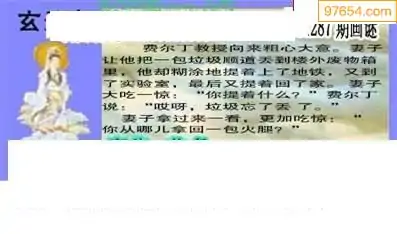 97654.com
玄
287期画谜
费尔丁教授向来粗心大意。妻子
让他把一包垃圾顺道丢到楼外废物箱
里，他却糊涂地提着上了地铁，又到
了实验室，最后又提着回了家。妻子
大吃一惊：“你提着什么？”费尔丁
说：“哎呀，垃圾忘了丢了。”
妻子拿过来一看，更加吃惊：“
你从哪儿拿回一包火腿？”